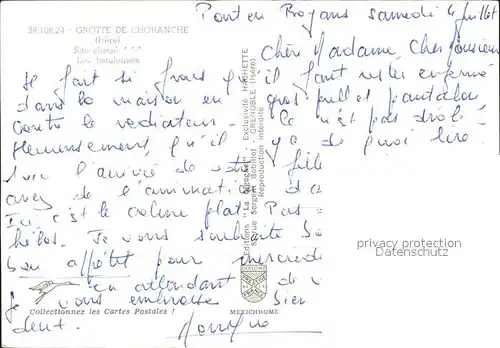 38.108.24 - GROTTE DE CHORANCHE
(Isère)
Site classé ***
Les fistuleuses
Pont en Royans samedi 4 juillet
Chère Madame, Cher Monsieur
Il fait si frais qu'il faut rester enfermé
dans la maison en gros pull et pantalon
contre le radiateur. Ce n'est pas drôle.
Heureusement, qu'il y a de quoi lire.
avec l'arrivée de votre fille
avez de l'animation
Ici c'est le calme plat. Pas
hélas. Je vous souhaite
bon appétit pour mercredi
En attendant de
Je vous embrasse bien
Editions "La Cigogne" - Exclusivité HACHETTE
8, rue Sergent Bobillot - GRENOBLE (Isère)
Reproduction interdite
privacy protection
Datenschutz
Collectionnez les Cartes Postales !
MEXICHROME